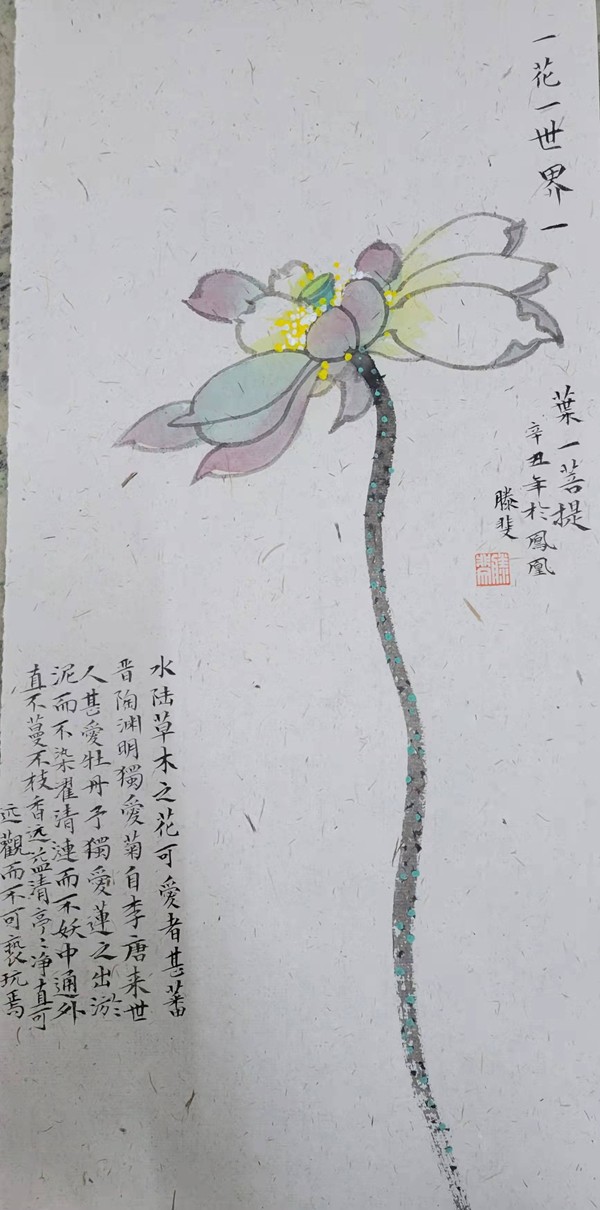 一花一世界一
葉一菩提
辛丑年於鳳凰
滕斐
水陆草木之花可愛者甚蕃
晋陶渊明獨愛菊自李唐来世
人甚愛牡丹予獨愛蓮之出淤
泥而不染濯清漣而不妖中通外
直不蔓不枝香远益清亭〻净直可
远觀而不可褻玩焉